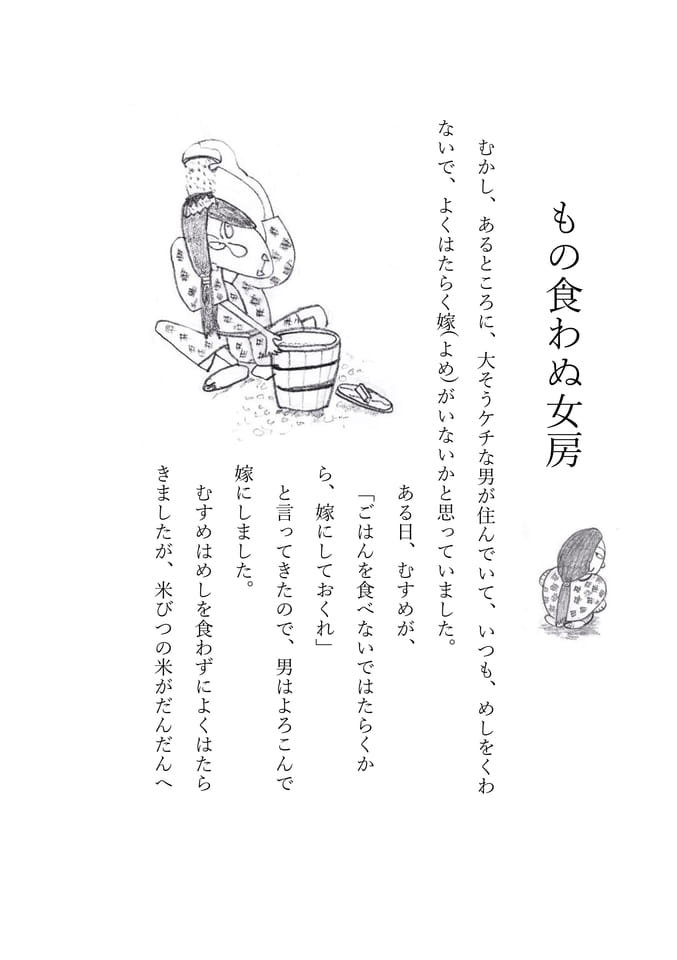 もの食わぬ女房
むかし、あるところに、大そうケチな男が住んでいて、いつも、めしをくわ
ないで、よくはたらく嫁(よめ)がいないかと思っていました。
ある日、むすめが、
「ごはんを食べないではたらくか
ら、嫁にしておくれ」
と言ってきたので、男はよろこんで
嫁にしました。
むすめはめしを食わずによくはたら
きましたが、米びつの米がだんだんへ